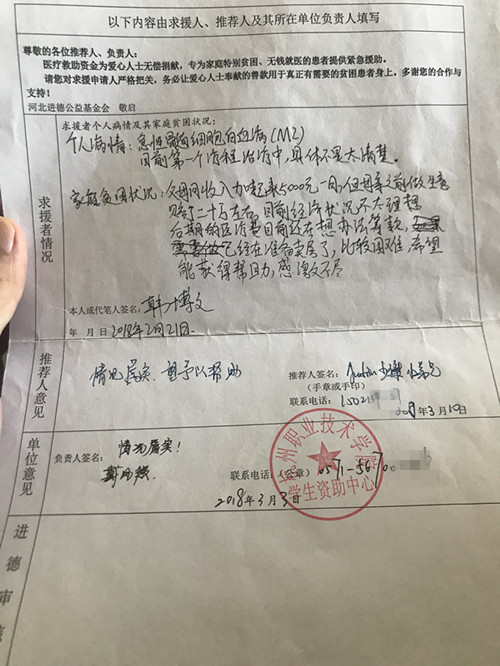 以下内容由求援人、推荐人及其所在单位负责人填写
尊敬的各位推荐人、负责人:
医疗救助资金为爱心人士无偿捐献,专为家庭特别贫困、无钱就医的患者提供紧急援助。
请您对求援申请人严格把关,务必让爱心人士奉献的善款用于真正有需要的贫困患者身上。多谢您的合作与
支持!
河北进德公益基金会 敬启
求援者情况
求援者个人病情及其家庭贫困状况:
个人病情:急性髓细胞白血病(M2)
目前第一个疗程治疗中,具体不是太清楚。
家庭贫困状况:父母同收入加起来5000元一月,但母亲之前做生意
赔了二十万左右,目前经济状况不太理想
后期的医治费目前还在想办法筹款,
已经在准备卖房了,比较困难,希望
能获得帮助,感激不尽
本人或代笔人签名:韩博文
年 月 日 2018年2月21日
推荐人意见
情况属实,望予以帮助
推荐人签名:
(手章或手印)
联系电话:15021
年3月10日
单位意见
情况属实!
负责人签名:
联系电话:(公章)0571-56700
2018年3月3日
州职业技术学院
学生资助中心
进德审核